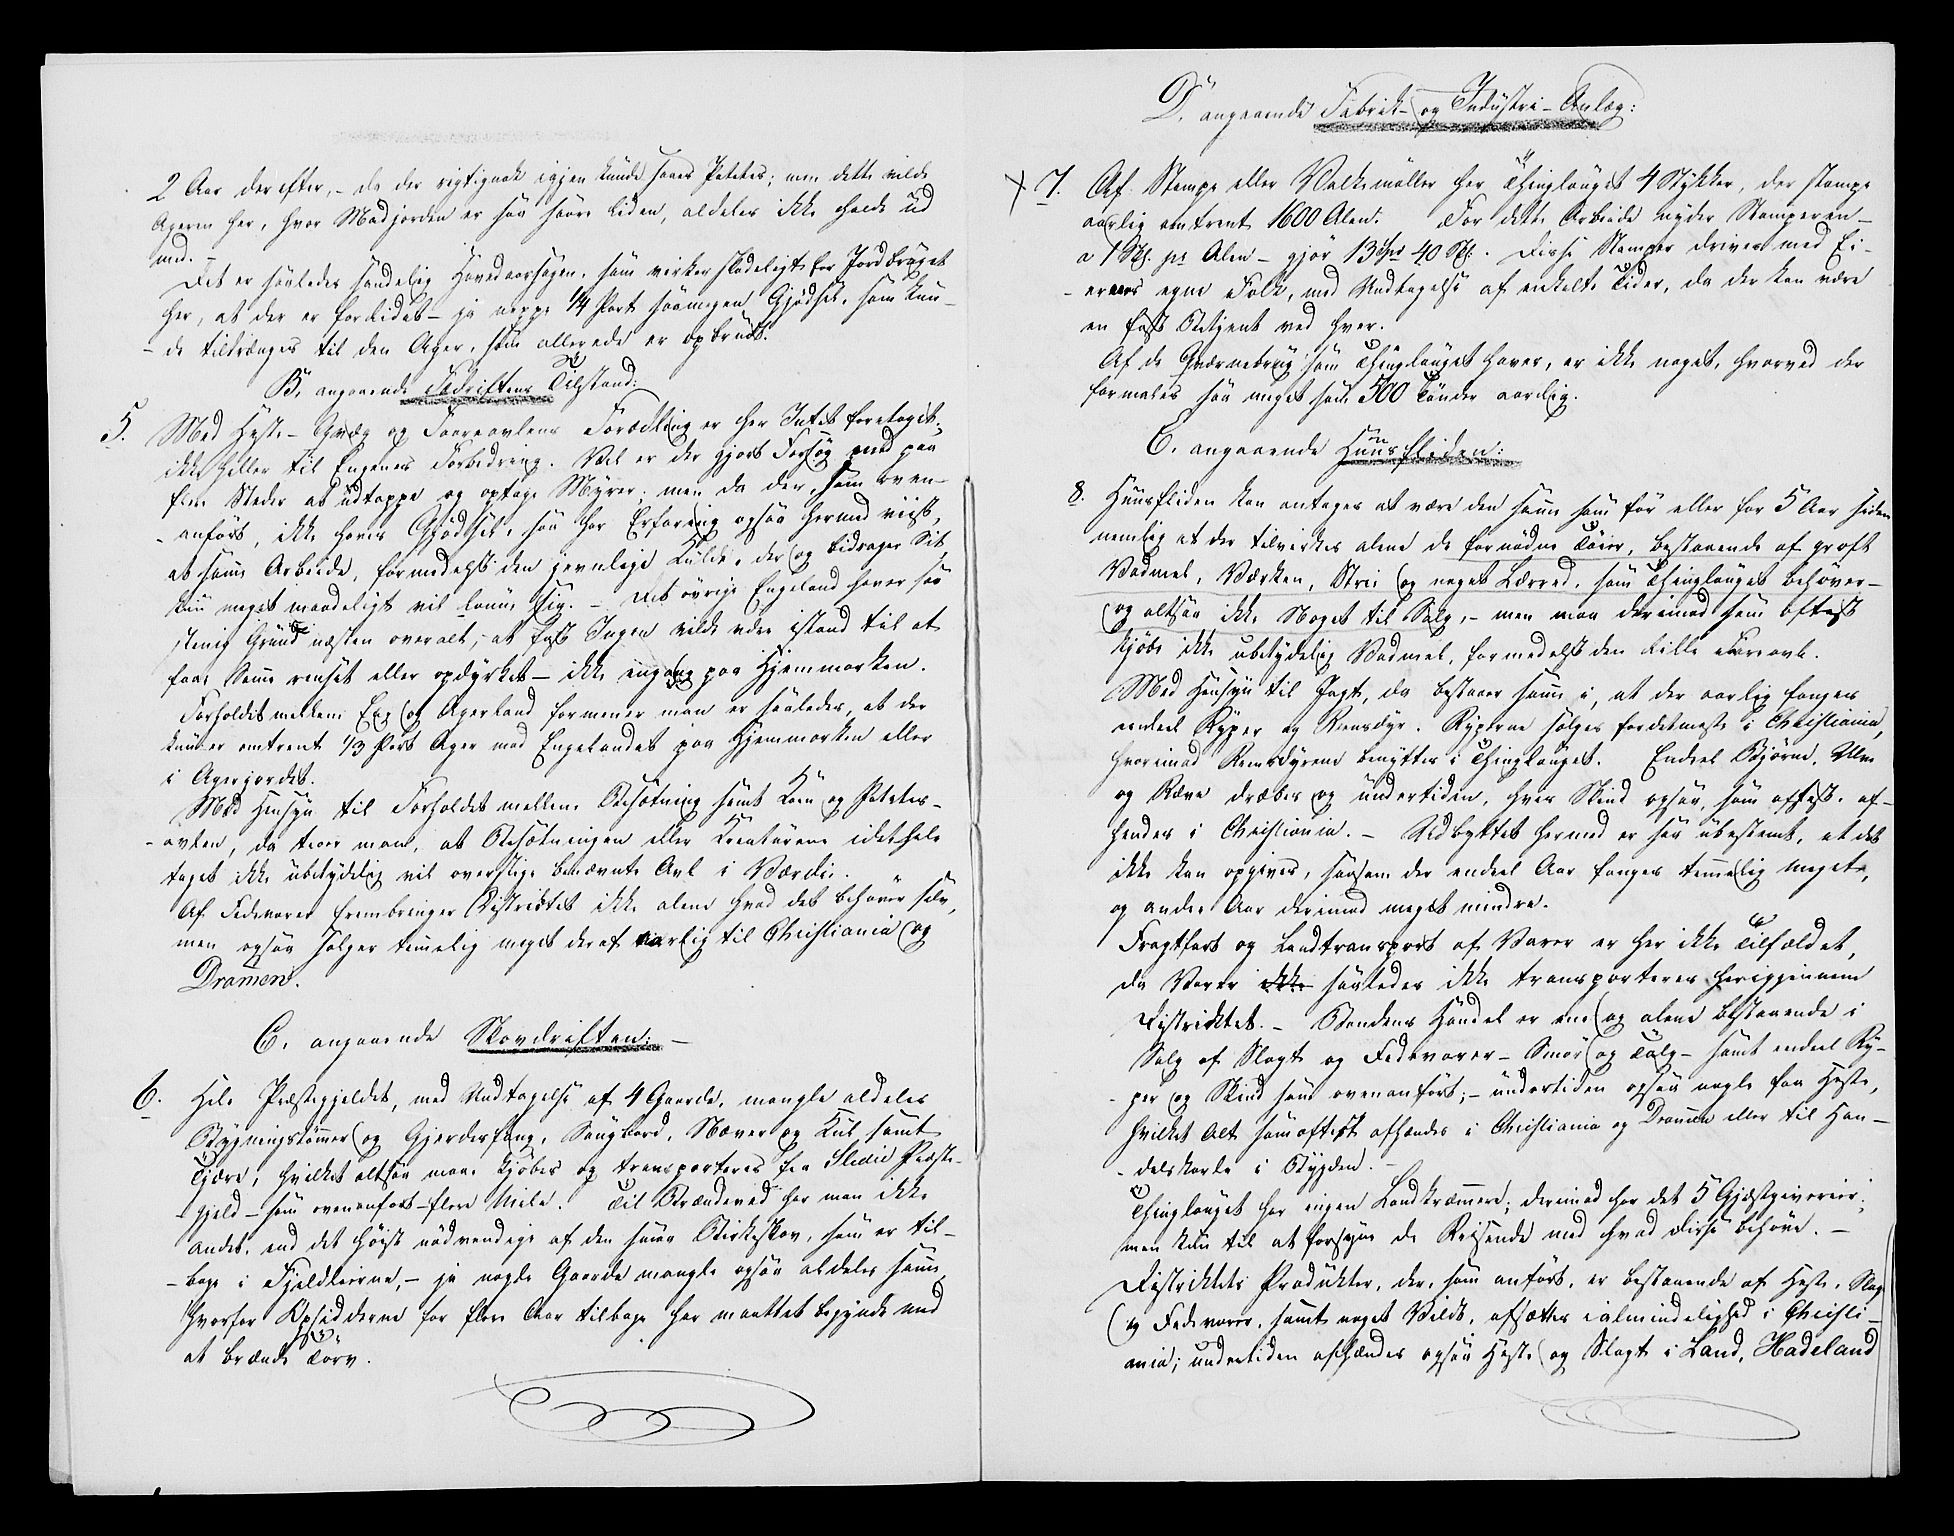 2 Aar derefter, – da der rigtignok igjen kunde saaes Potetes; men dette vilde
Ageren her, hvor Madjorden er saa saare liden, aldeles ikke holde ud
med. –
Det er saaledes sandelig Hovedaarsagen, som virker skadeligt for Jordbruget
her, at der er forlidet – ja neppe 1/4 Part saamegen Gjødsel, som kun-
- de tiltrænges til den Ager, som allerede er opbrudt.
B, angaaende Fædriftens Tilstand:
5. Med Heste- Qvæg og Faareavlens Forædling er her Intet foretaget,
ikke heller til Engenes Forbedring. Vel er der gjort Forsøg med paa
flere Steder at udtappe og optage Myrer; men da der, som oven-
- anført, ikke haves Gjødsel, saa har Erfaring ogsaa hermed viist,
at samme Arbeide, formedelst den jevnlige Kulde, der og bidrager Sit,
kun meget maadeligt vil lønne sig. – Det øvrige Engeland haver saa
stenig Grund næsten overalt, at fast Ingen vilde være istand til at
faae Samme renset eller opdyrket – ikke engang paa Hjemmarken.
Forholdet mellem Eng og Agerland formener man er saaledes, at der
kun er omtrent 1/3 Part Ager mod Engelandet paa Hjemmarken eller
i Agerjordet.
Med Hensyn til Forholdet mellem Besætning samt Korn og Potetes-
- avlen, da troer man, at Besætningen eller Kreaturene idethele
taget ikke ubetydelig vil overstige benævnte Avl i Værdi.
Af Fedevarer frembringer Districtet ikke alene hvad det behøver selv,
men ogsaa sælger temmelig meget deraf aarlig til Christiania og
Drammen.
C, angaaende Skovdriften: –
6. Hele Præstegjeldet, med Undtagelse af 4 Gaarde, mangle aldeles
Bygningstømmer og Gjerdesfang, Saugbord, Næver og Kul samt
Tjære, hvilket altsaa maae kjøbes og transporteres fra Slidre Præste-
- gjeld – som ovenanført – flere Mile. Til Brændeved har man ikke
andet, end det høist nødvendige af den smaa Birkeskov, som er til-
- bage i Fjeldlierne, – ja nogle Gaarde mangle ogsaa aldeles samme
hvorfor Opsidderne for flere Aar tilbage har maattet begynde med
at brænde Törv.
D, angaaende Fabrik- og Industri-Anlæg:
7. Af Stampe eller Valkemøller har Thinglauget 4 Stykker, der stampe
aarlig omtrent 1600 Alen. For dette Arbeide nyder Stamperen –
a 1 Sk. pr Alen – gjør 13 Spd 40 Sk. Disse Stamper drives med Ei-
- erens egne Folk, med Undtagelse af enkelte Tider, da der kan være
en fast Betjent ved hver.
Af de Qværnebrug som Thinglauget haver, er ikke noget, hvorved der
formales saa meget som 500 Tønder aarlig.
E, angaaende Huusfliden:
8. Huusfliden kan antages at være den samme som før eller for 5 Aar siden
nemlig at der tilvirkes alene de fornødne Tøier, bestaaende af groft
Vadmel, Værken, Strie og noget Lærred, som Thinglauget behøver –
og altsaa ikke Noget til Salg, – men maa derimod som oftest
kjøbe ikke ubetydelig Vadmel, formedelst den lille Faareavl.
Med Hensyn til Jagt, da bestaaer samme i, at der aarlig fanges
endeel Ryper og Rensdyr. Ryperne sælges fordetmeste i Christiania,
hvorimod Rensdyrene benyttes i Thinglauget. Endeel Bjørne, Ulve
og Ræve dræbes og undertiden, hvis Skind ogsaa, som oftest, af-
hændes i Christiania. – Udbyttet hermed er saa ubestemt, at det
ikke kan opgives, saasom der endeel Aar fanges temmelig meget,
og andre Aar derimod meget mindre.
Fragtfart og Landtransport af Varer er her ikke Tilfældet,
da Varer ikke saaledes ikke transporteres herigjennem
Districtet. – Bondens Handel er ene og alene bestaaende i
Salg af Slagt og Fedevarer – Smør og Talg – samt endeel Ry-
- per og Skind som ovenanført; – undertiden ogsaa nogle faa Heste,
hvilket Alt som oftest afhændes i Christiania og Drammen eller til Han-
- delskarle i Bygden. –
Thinglauget har ingen Landkræmmere; derimod har det 5 Gjæstgiverier;
men kun til at forsyne de Reisende med hvad disse behøve. –
Districtets Produkter, der, som anført, er bestaaende af Heste, Slagt
og Fedevarer, samt noget Vildt, afsættes i almindelighed i Christi-
ania; undertiden afhændes ogsaa Heste og Slagt i Land, Hadeland